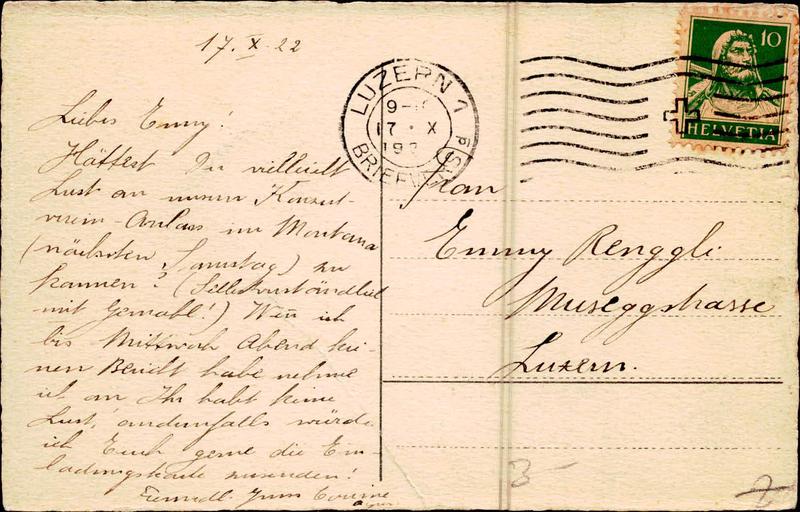 17. X. 22
Liebes Emmy!
Hättest Du vielleicht
Lust an unsern Konzert-
verein-Anlass im Montana
(nächsten Samstag) zu
kommen? (Selbstverständlich
mit Gemahl!) Wenn ich
bis Mittwoch Abend kei-
nen Bericht habe nehme
ich an Ihr habt keine
Lust, andernfalls würde
ich Euch gerne die Ein-
ladungskarte zusenden!
LUZERN 1
17 · X
BRIEF
10
HELVETIA
Frau
Emmy Renggli
Museggstrasse
Luzern.
3-